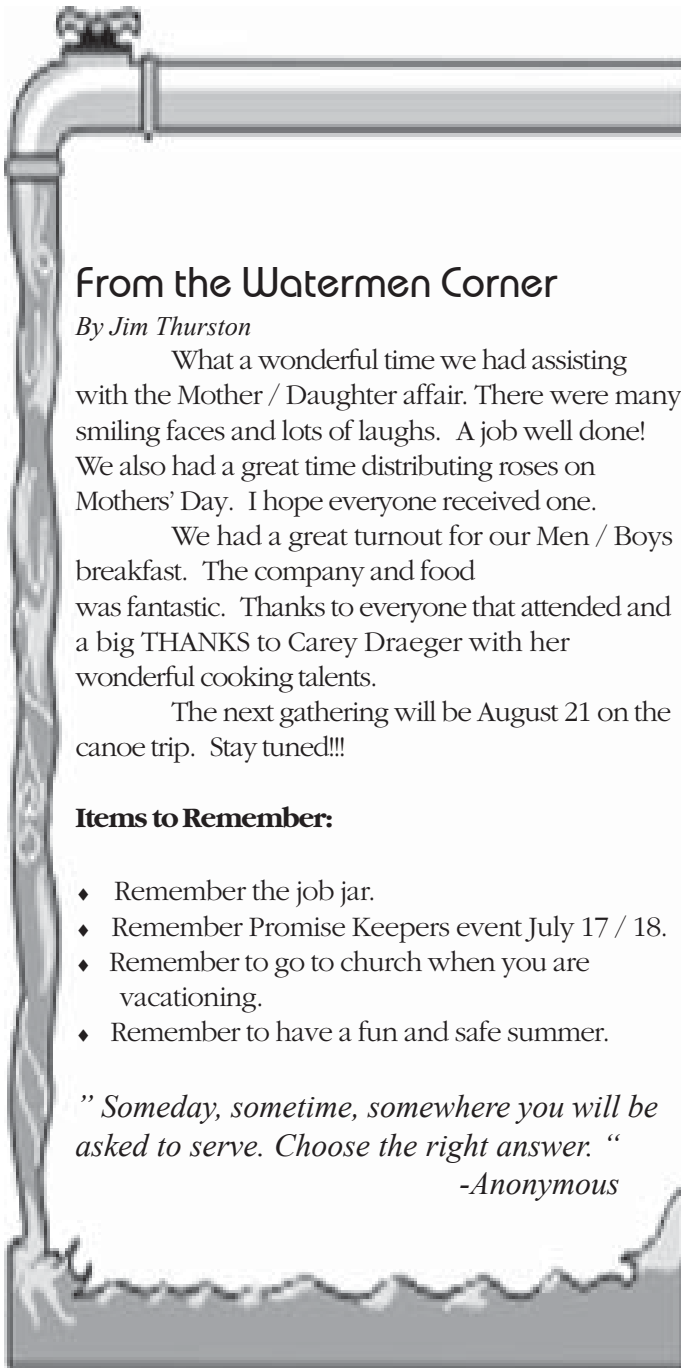 From the Watermen Corner
By Jim Thurston
What a wonderful time we had assisting
with the Mother / Daughter affair. There were many
smiling faces and lots of laughs.  A job well done!
We also had a great time distributing roses on
Mothers’ Day.  I hope everyone received one.
We had a great turnout for our Men / Boys
breakfast.  The company and food
was fantastic.  Thanks to everyone that attended and
a big THANKS to Carey Draeger with her
wonderful cooking talents.
The next gathering will be August 21 on the
canoe trip.  Stay tuned!!!
Items to Remember:
♦ Remember the job jar.
♦ Remember Promise Keepers event July 17 / 18.
♦ Remember to go to church when you are
vacationing.
♦ Remember to have a fun and safe summer.
” Someday, sometime, somewhere you will be
asked to serve. Choose the right answer. “
-Anonymous